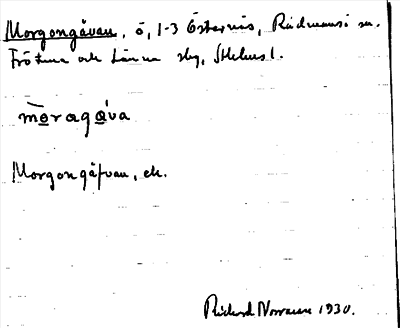 Morgongåvan, ö, 1-3 Östernäs, Rådmansö sn.
Frötuna och Länna skg, Sthlms l.
mòragǻva
Morgongåfvan, ek.
Rickard Norrman 1930.